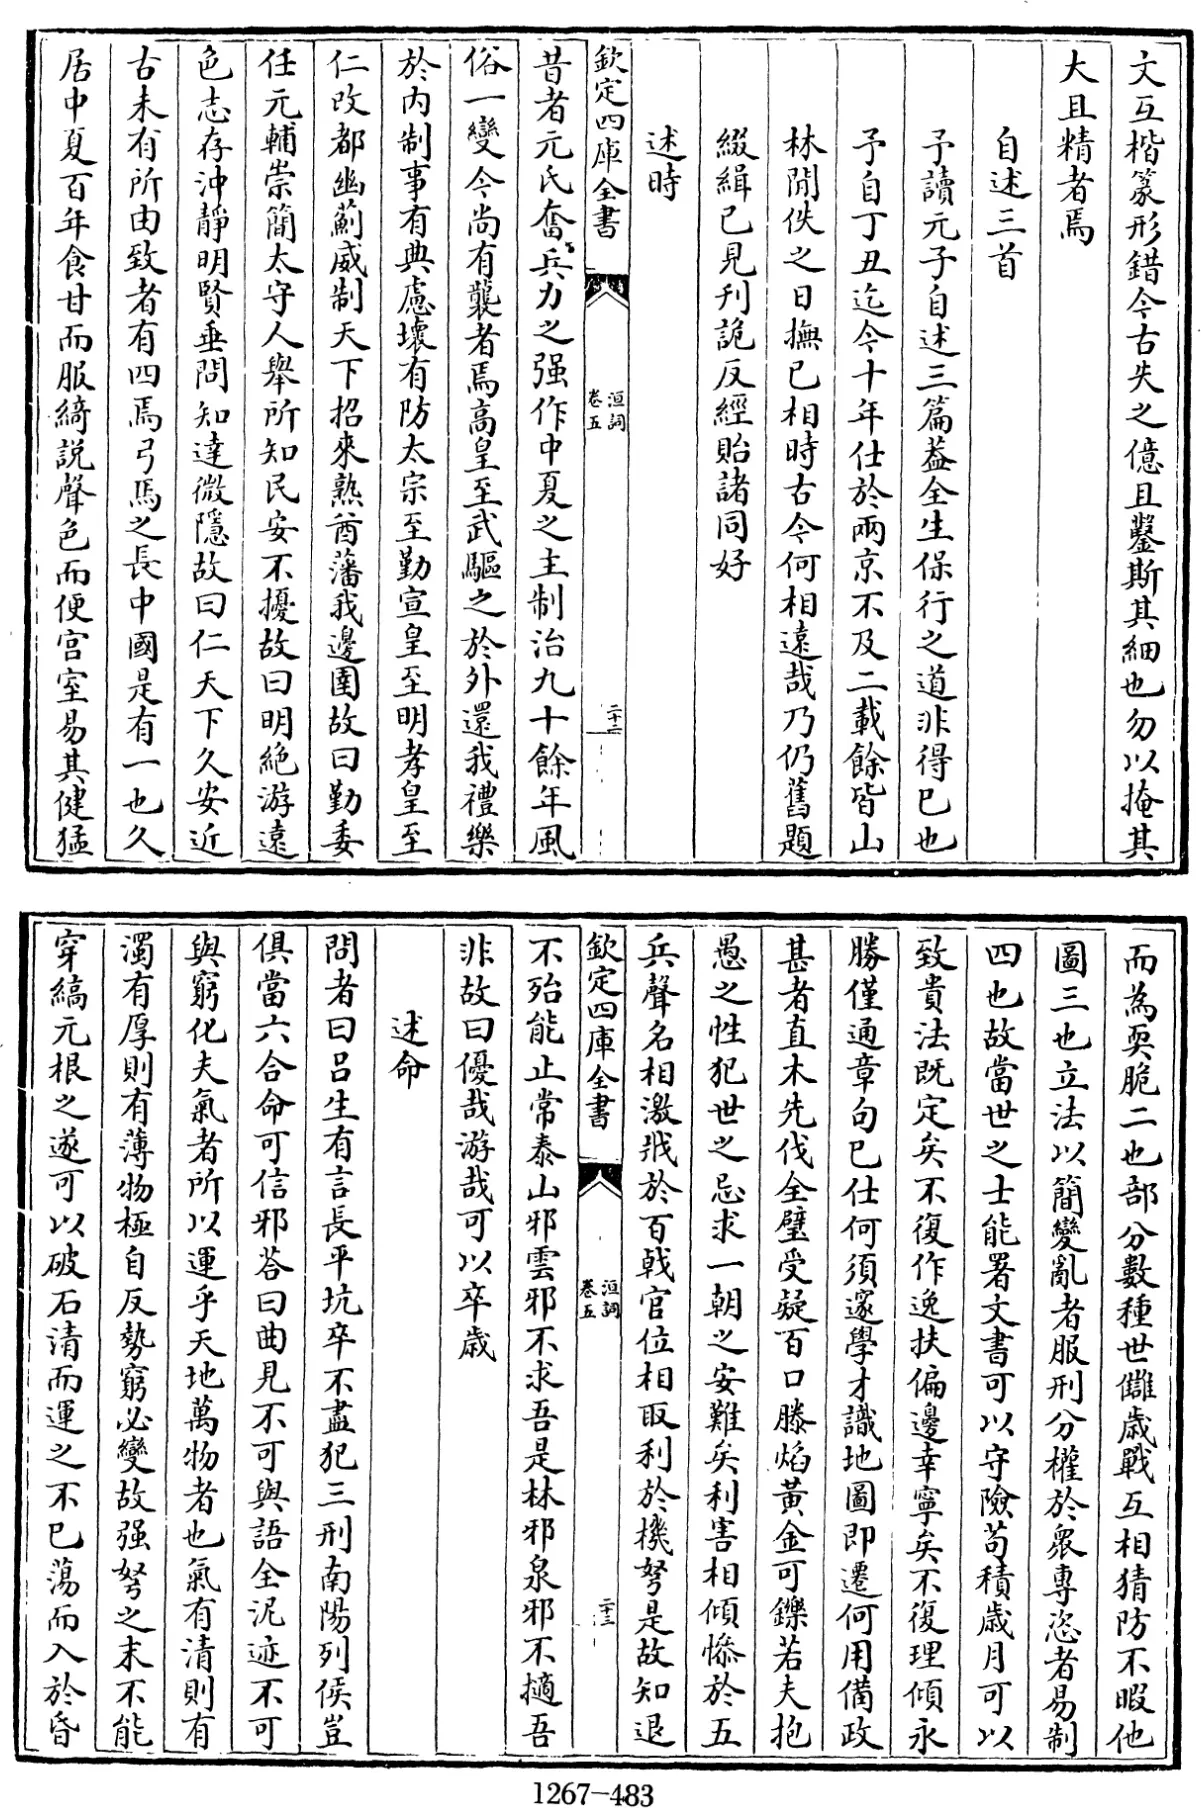 文互楷篆形錯今古失之億且鑿斯其細也勿以掩其
大且精者焉
自述三首
予讀元子自述三篇葢全生保行之道非得已也
予自丁丑迄今十年仕於兩京不及二載餘皆山
林閒佚之日撫已相時古今何相遠哉乃仍舊題
綴緝已見刋詭反經貽諸同好
述時
欽定四庫全書
洹詞
卷五
二十二
昔者元氏奮兵力之强作中夏之主制治九十餘年風
俗一變今尚有襲者焉高皇至武驅之於外還我禮樂
於内制事有典慮壞有防太宗至勤宣皇至明孝皇至
仁改都幽薊威制天下招來熟酋藩我邊圉故曰勤委
任元輔崇簡太守人舉所知民安不擾故曰明絶游遠
色志存沖靜明賢垂問知達微隱故曰仁天下久安近
古未有所由致者有四焉弓馬之長中國是有一也久
居中夏百年食甘而服綺説聲色而便宫室易其健猛
而為耎脆二也部分數種世讎歲戰互相猜防不暇他
圖三也立法以簡變亂者服刑分權於衆專恣者易制
四也故當世之士能署文書可以守險苟積歲月可以
致貴法既定矣不復作逸扶偏邊幸寧矣不復理傾永
勝僅通章句已仕何須邃學才識地圖即遷何用備政
甚者直木先伐全璧受疑百口騰焰黄金可鑠若夫抱
愚之性犯世之忌求一朝之安難矣利害相傾慘於五
兵聲名相激戕於百戟官位相取利於機弩是故知退
欽定四庫全書
洹詞
卷五
二十三
不殆能止常泰山邪雲邪不求吾是林邪泉邪不擿吾
非故曰優哉游哉可以卒歲
述命
問者曰吕生有言長平坑卒不盡犯三刑南陽列侯豈
俱當六合命可信邪荅曰曲見不可與語全泥迹不可
與窮化夫氣者所以運乎天地萬物者也氣有清則有
濁有厚則有薄物極自反勢窮必變故强弩之末不能
穿縞元根之遂可以破石清而運之不已蕩而入於昏
1267-483